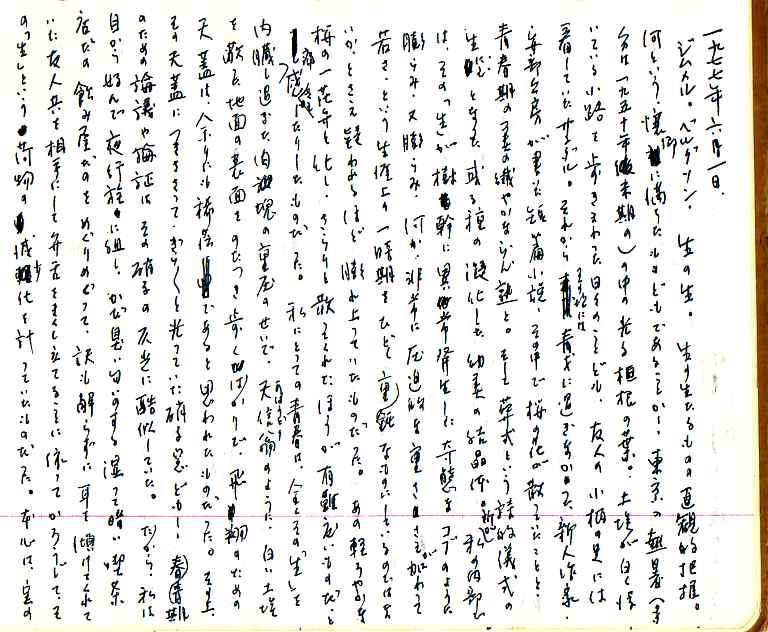 一九七七年六月一日。
ジムメル。ベルグソン。生の生。生の生たるものの直観的把握。
何という、懐しさに満ちたものどもであることか！東京の
(今は一九五〇年後末期の)の中の光る垣根の葉。土塀が白く
いている小路を歩きまわった日々のことども。友人の小柄の足には
着していたサンダル。それから 青春に過ぎなかった、新人作家・
安部公房が書いた短篇小説、その中で桜の花が散ってたことと、
青春期の柔の繊やかならん熟と。そして葬式という詩的儀式の
生 となった或る種の凝化した幼美の結晶体。私の内部で
は、その「生」が樹幹に異常発生した奇態なコブのように
膨らみ、又膨らみ、何か非常に圧迫的な重さをさえ加わって
若さ、という生涯上の一時期をひどく重鈍なものにしているのではな
いか、とさえ疑われるほど膨れ上っていたものだった。あの軽ろやかな
桜の一花弁と化し、さらりと散ってくれたほうが有難いものだと
感じたりしたものだった。私にとっての青春は、全くその「生」を
内臓し過ぎた肉塊の重圧のせいで、天信翁のように、白い土塀
を散った地面の表面をのたつき歩くばかりで、飛翔のための
天蓋は、余りにも稀 であると思われたものだった。その上
その天蓋につきささって、ぎらぎらと光っていた硝子窓ども！青春期
のための論議や論証は、その硝子の反光に酷似していた。だから私は
自から好んで夜行族に組し、かび臭い匂のする湿って暗い喫茶
店だの飲み屋だのをめぐりめぐって、訳も解らずに耳を傾けてくれて
いた友人共を相手にして弁舌をまくし立てることに依ってかろうじてそ
の「生」という荷物の減少化を計っていたものだった。本心は、宝の